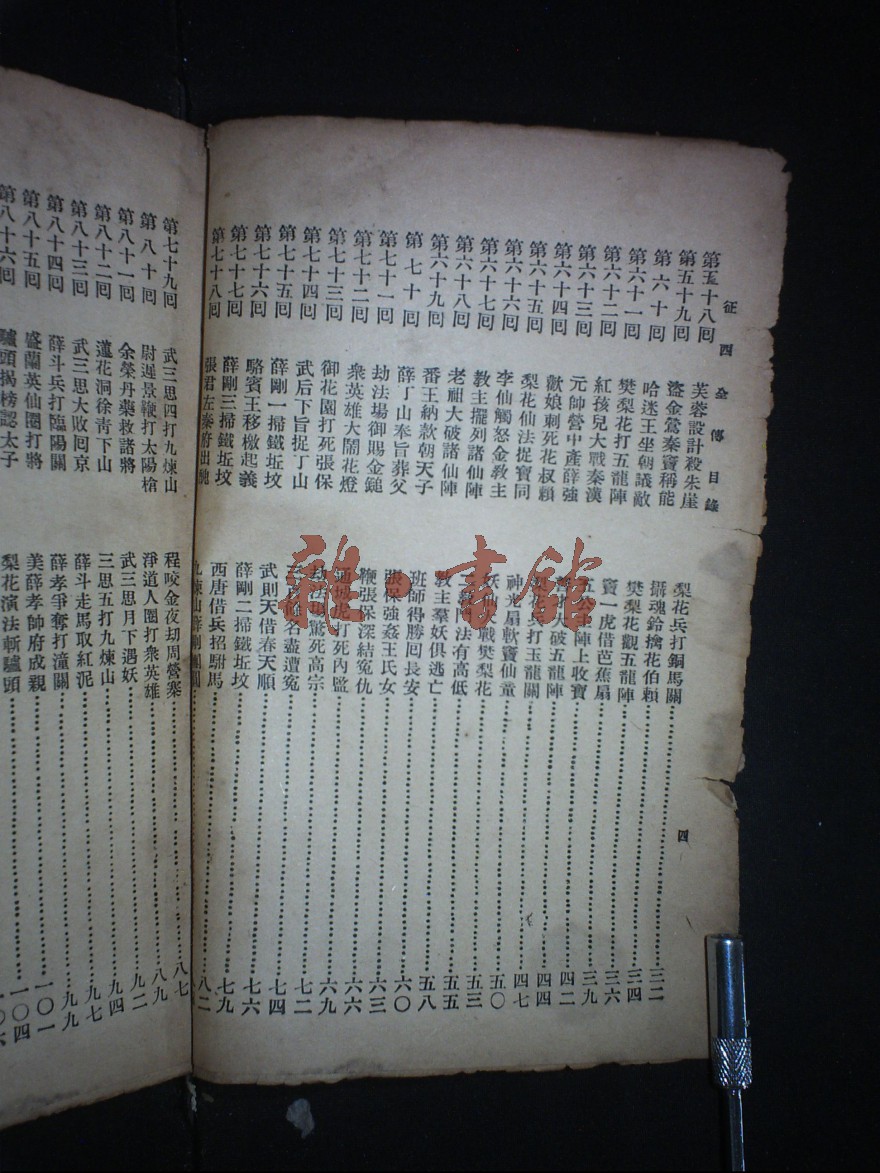 征四全傳目錄
第五十八囘 芙蓉設計殺朱崖 梨花兵打銅馬關 三二
第五十九囘 盜金鶯秦竇稱能 攝魂鈴擒花伯賴 三四
第六十囘 哈迷王坐朝議敵 樊梨花觀五龍陣 三六
第六十一囘 樊梨花打五龍陣 竇一虎借芭蕉扇 三九
第六十二囘 紅孩兒大戰秦漢 五公主陣上收寶 四二
第六十三囘 元帥營中產薛強 大破五龍陣 四四
第六十四囘 獻娘刺死花叔賴 花兵打玉龍關 四七
第六十五囘 梨花仙法捉寶同 神光扇軟竇仙童 五〇
第六十六囘 李仙觸怒金敎主 妖仙大戰樊梨花 五三
第六十七囘 敎主擺列諸仙陣 敎鬥法有高低 五五
第六十八囘 老祖大破諸仙陣 敎主羣妖俱逃亡 五八
第六十九囘 番王納款朝天子 班師得勝囘長安 六〇
第七十囘 薛丁山奉旨葬父 張保強姦王氏女 六三
第七十一囘 劫法塲御賜金鎚 鞭張保深結冤仇 六六
第七十二囘 衆英雄大鬧花燈 通城虎打死內監 六九
第七十三囘 御花園打死張保 劫法塲驚死高宗 七二
第七十四囘 武后下旨捉丁山 三百餘名盡遭冤 七四
第七十五囘 薛剛一掃鐵坵坟 武則天借春天順 七六
第七十六囘 駱賓王移檄起義 薛剛二掃鐵坵坟 七九
第七十七囘 薛剛三掃鐵坵坟 西唐借兵招駙馬 八二
第七十八囘 張君左秦府出醜 九煉山薛剛團圓
四
第七十九囘 武三思四打九煉山 程咬金夜刧周營寨 八七
第八十囘 尉遲景鞭打太陽槍 淨道人圈打衆英雄 八九
第八十一囘 余榮丹藥救諸將 武三思月下遇妖 九二
第八十二囘 蓮花洞徐青下山 三思五打九煉山 九四
第八十三囘 武三思大敗囘京 薛斗走馬取紅泥 九七
第八十四囘 薛斗兵打臨陽關 薛孝爭奪打潼關 九九
第八十五囘 盛蘭英仙圈打將 美薛孝帥府成親 一〇一
第八十六囘 驢頭揭榜認太子 梨花演法斬驢頭 一〇四
雜·書館